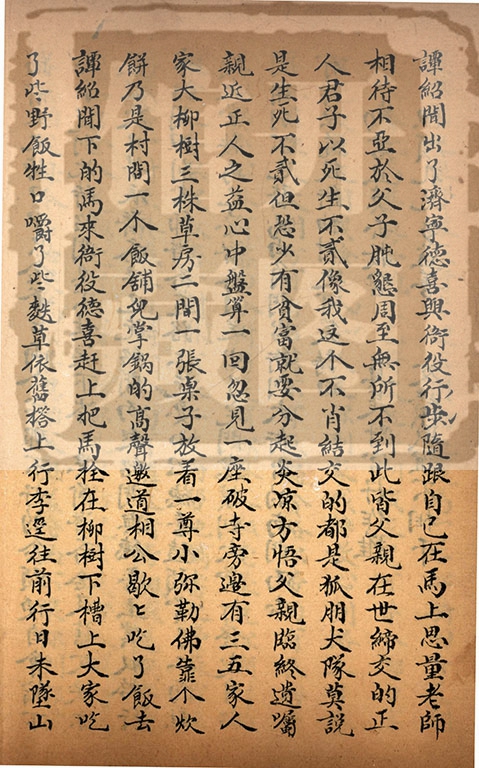 譚紹聞出了濟寧德喜與衙役行步隨跟自己在馬上思量老師
相待不亞於父子肫懇周至無所不到此皆父親在世締交的正
人君子以死生不貳像我这个不肖結交的都是狐朋犬隊莫說
是生死不貳但恐少有貧富就要分起炎凉方悟父親臨終遺囑
親近正人之益心中盤算一回忽見一座破寺旁邊有三五家人
家大柳樹三株草房二間一張桌子放着一尊小弥勒佛靠个炊
餅乃是村間一个飯舖兒掌鍋的高聲邀道相公歇〻吃了飯去
譚紹聞下的馬來衙役德喜赶上把馬拴在柳樹下槽上大家吃
了些野飯牲口嚼了些麩草依舊搭上行李逕往前行日未墜山